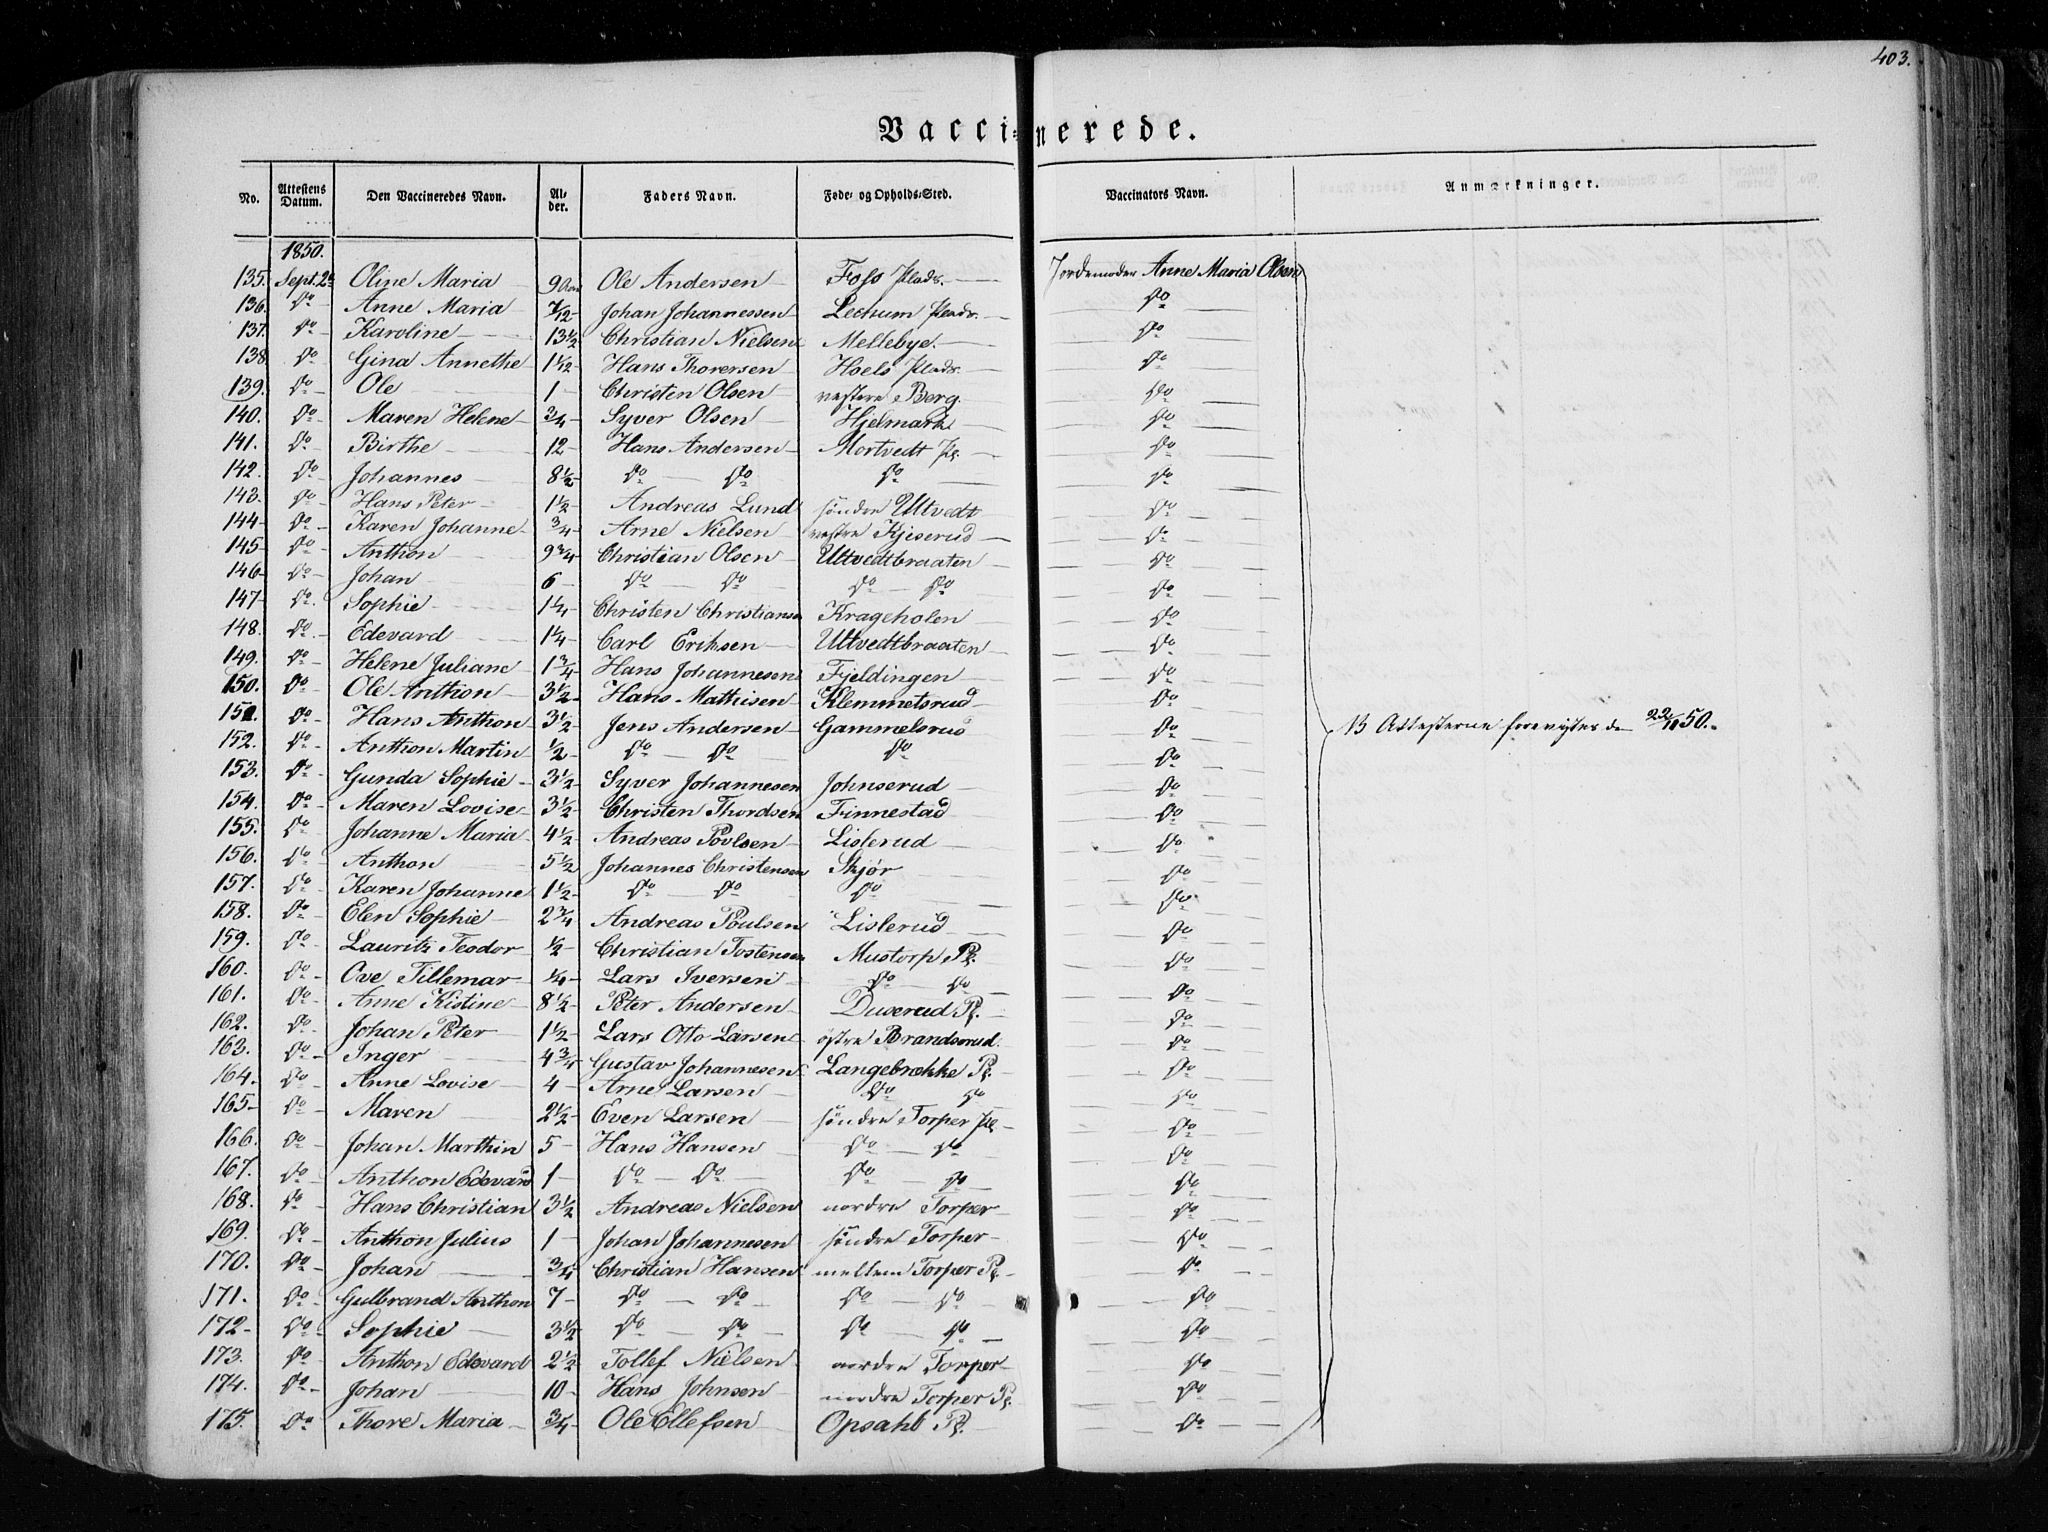 403.
Vaccinerede.
No. Attestens Datum. Den Vaccineredes Navn. Alder. Faders Navn. Føde- og Opholds-Sted. Vaccinators Navn. Anmærkninger.
1850.
135. Sept. Oline Maria 9 Ole Andersen Foss Plads. Jordemoder Anne Maria Olsen
136. Do Anne Maria 7/12 Johan Johannessen Lechum Plads. Do
137. Do Karoline 13 1/2 Christian Nielsen Mellebye. Do
138 Do Gina Annethe 1 1/12 Hans Thorersen Hoels Plads. Do
139. Do Ole 1 Christen Olsen vestre Berg. Do
140. Do Maren Helene 3/4 Syver Olsen Hjelmark Do
141. Do Birthe 12 Hans Andersen Mortvedt Pl. Do
142. Do Johannes 8 1/2 Do Do Do Do
143. Do Hans Peter 1 1/2 Andreas Lund søndre Utvedt Do
144 Do Karen Johanne 3/4 Arne Nielsen vestre Kjiserud Do
145 Do Anthon 9 3/4 Christian Olsen Utvedtbraaten Do
146 Do Johan 6 Do Do Do Do Do
147 Do. Sophie 1 1/4 Christen Christiansen Krageholen Do
148. Do Edevard 1 1/4 Carl Eriksen Utvedtbraaten Do
149. Do Helene Juliane 1 3/4 Hans Johannesen Fjeldingen Do
150. Do Ole Anthon 3 1/2 Hans Mathisen Klemmetsrud Do
151. Do Hans Anthon 3 1/2 Jens Andersen Gammelsrud Do 13 Attesterne forevistes d. 22/11 50.
152. Do Anthon Martin 1/2 Do Do Do Do
153. Do Gunda Sophie 3 1/2 Syver Johannesen Johnserud Do
154. Do Maren Lovise 3 1/2 Christen Thordsen Finnestad Do
155. Do Johanne Maria 4 1/2 Andreas Povlsen Lislerud Do
156. Do Anthon 5 1/2 Johannes Christensen Skjør Do
157. Do Karen Johanne 1 1/2 Do Do Do Do
158. Do Elen Sophie 2 3/4 Andreas Poulsen Lislerud Do
159. Do Lauritz Teodor 1/2 Christian Tostensen Mustorp Pl. Do
160. Do Ove Tillemar 1/4 Lars Iversen Do Do Do
161. Do Anne Kistine 8 1/2 Peter Andersen Duserud Pl. Do
162. Do Johan Peter 1 1/2 Lars Otto Larsen østre Brandsrud. Do
163. Do Inger 4 3/4 Gustav Johannesen Langebrække Pl. Do
164. Do Anne Lovise 4 Arne Larsen Do Do Do
165 Do Maren 2 1/2 Even Larsen søndre Torper Pl. Do
166. Do Johan Marthin 5 Hans Hansen Do Do Do
167. Do Anthon Edevard 1 Do Do Do Do Do
168. Do Hans Christian 3 1/2 Andreas Nielsen nordre Torper Do
169. Do Anthon Julius 1 Johan Johannesen søndre Torper Do
170. Do Johan 3/4 Christian Hansen mellem Torper Pl. Do
171. Do Gulbrand Anthon 7 Do Do Do Do Do
172 Do Sophie 3 1/2 Do Do Do Do Do
173. Do Anthon Edevard 2 1/2 Tollef Nielsen nordre Torper Do
174. Do Johan 10 Hans Johnsen nordre Torper Pl. Do
175. Do Thore Maria 3/4 Ole Ellefsen Opsahl Pl. Do